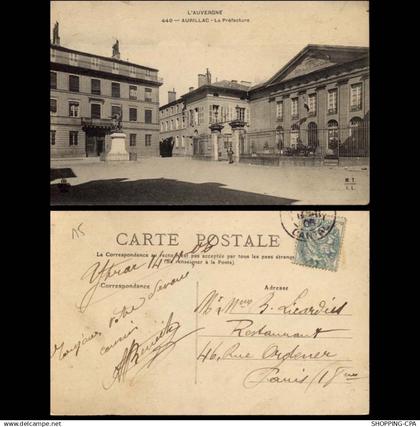 L'AUVERGNE
440 — AURILLAC - La Préfecture
M.T.
I.L.
CARTE POSTALE
La Correspondance au recto n'est pas acceptée par tous les pays étrangers
(Se renseigner à la Poste).
Correspondance
Adresse
Ytrac 14
Toujours votre dévoué
cousin
Restaurant
46, Rue Ordener
Paris 18
CANTAL
WWW.SHOPPING-CPA.COM